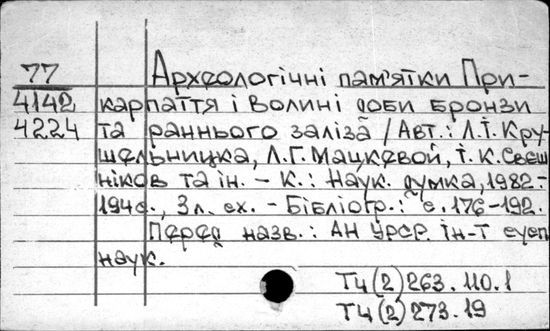 77 Археологічні пам'ятки При-
4142 карпаття і Волині доби бронзи
4224 та раннього заліза / Авт.: Л.І. Кру-
шельницка, Л.Г. Мацкевой, І.К. Свєш-
ніков та ін. - К.: Наук. думка, 1982-
194с., 3л. сх. - Бібліогр.: с. 176-192.
Перед назв.: АН УРСР. Ін-т сусп
наук.
Т4(2)263.110.1
Т4(2)273.19